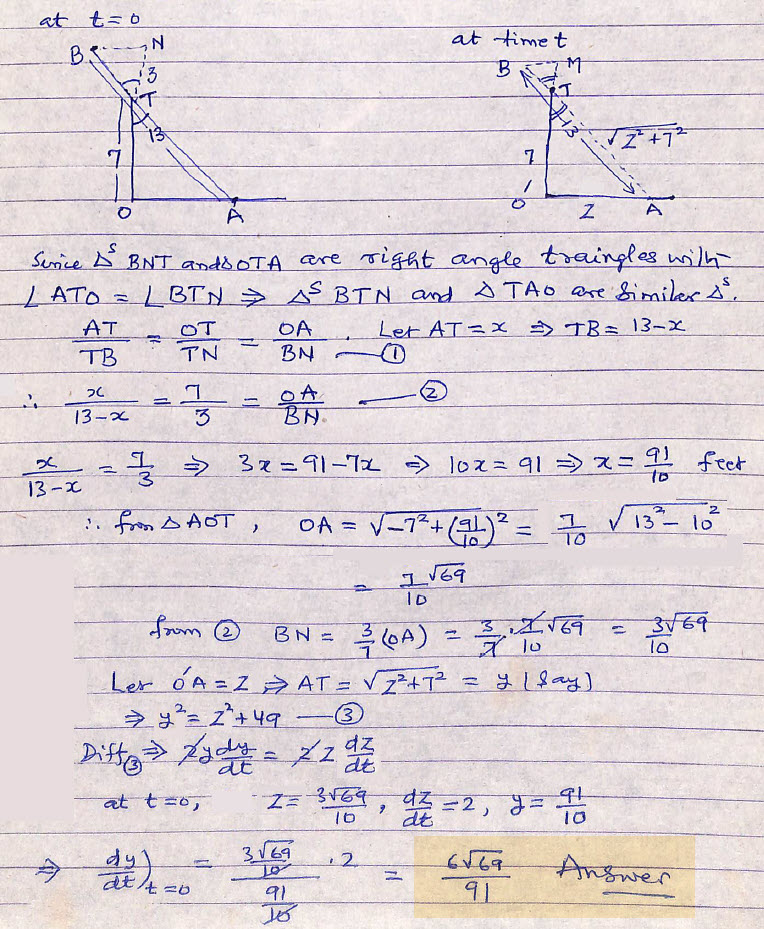 at t=0
B N
3
T
13
7
O A
at time t
B M
T
13
√Z²+7²
7
O' Z A
Since Δˢ BNT and ΔOTA are right angle traingles with
∠ATO = ∠BTN ⇒ Δˢ BTN and Δ TAO are Similar Δˢ.
AT/TB = OT/TN = OA/BN. — ① Let AT = x ⇒ TB = 13-x
∴ x/(13-x) = 7/3 = OA/BN. — ②
x/(13-x) = 7/3 ⇒ 3x = 91-7x ⇒ 10x = 91 ⇒ x = 91/10 feet
∴ from Δ AOT, OA = √-7²+(91/10)² = 7/10 √13²-10²
= 7√69/10
from ② BN = 3/7 (OA) = 3/7 · 7/10 √69 = 3√69/10
Let O'A = Z ⇒ AT = √Z²+7² = y (Say)
⇒ y² = Z²+49 — ③
Diff ③ ⇒ 2y dy/dt = 2Z dZ/dt
at t=0, Z = 3√69/10, dZ/dt = 2, y = 91/10
⇒ dy/dt)t=0 = (3√69/10)/(91/10) · 2 = 6√69/91 Answer